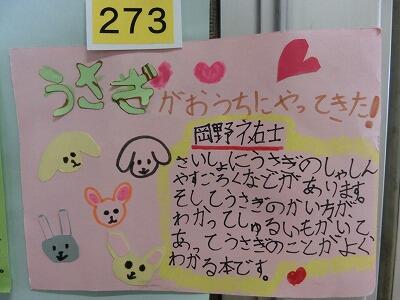 273
うさぎがおうちにやってきた!
岡野祐士
さいしょにうさぎのしゃしん
やすごろくなどが あります。
そしてうさぎのかい方が、
わかってしゅるいもかいて
あってうさぎのことがよく
わかる本です。